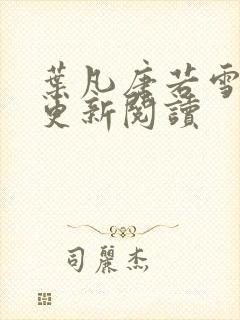 葉凡唐若雪
更新閱讀
司麗杰